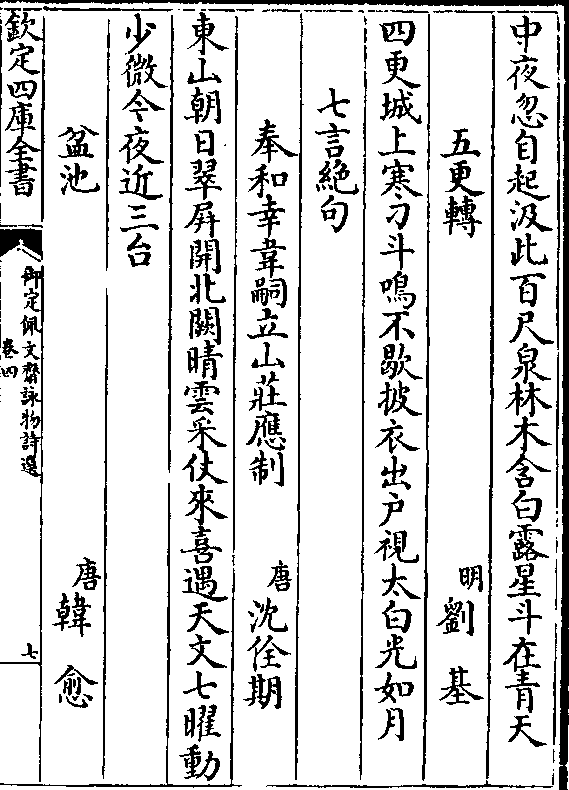 中夜忽自起汲此百尺泉林木含白露星斗在青天
五更轉 明劉基
四更城上寒刁斗鳴不歇披衣出户視太白光如月
七言絶句
奉和幸韋嗣立山莊應制 唐沈佺期
東山朝日翠屏開北闕晴雲采仗來喜遇天文七曜動
少微今夜近三台
盆池 唐韓愈
欽定四庫全書
御定佩文齋詠物詩選
卷四
七